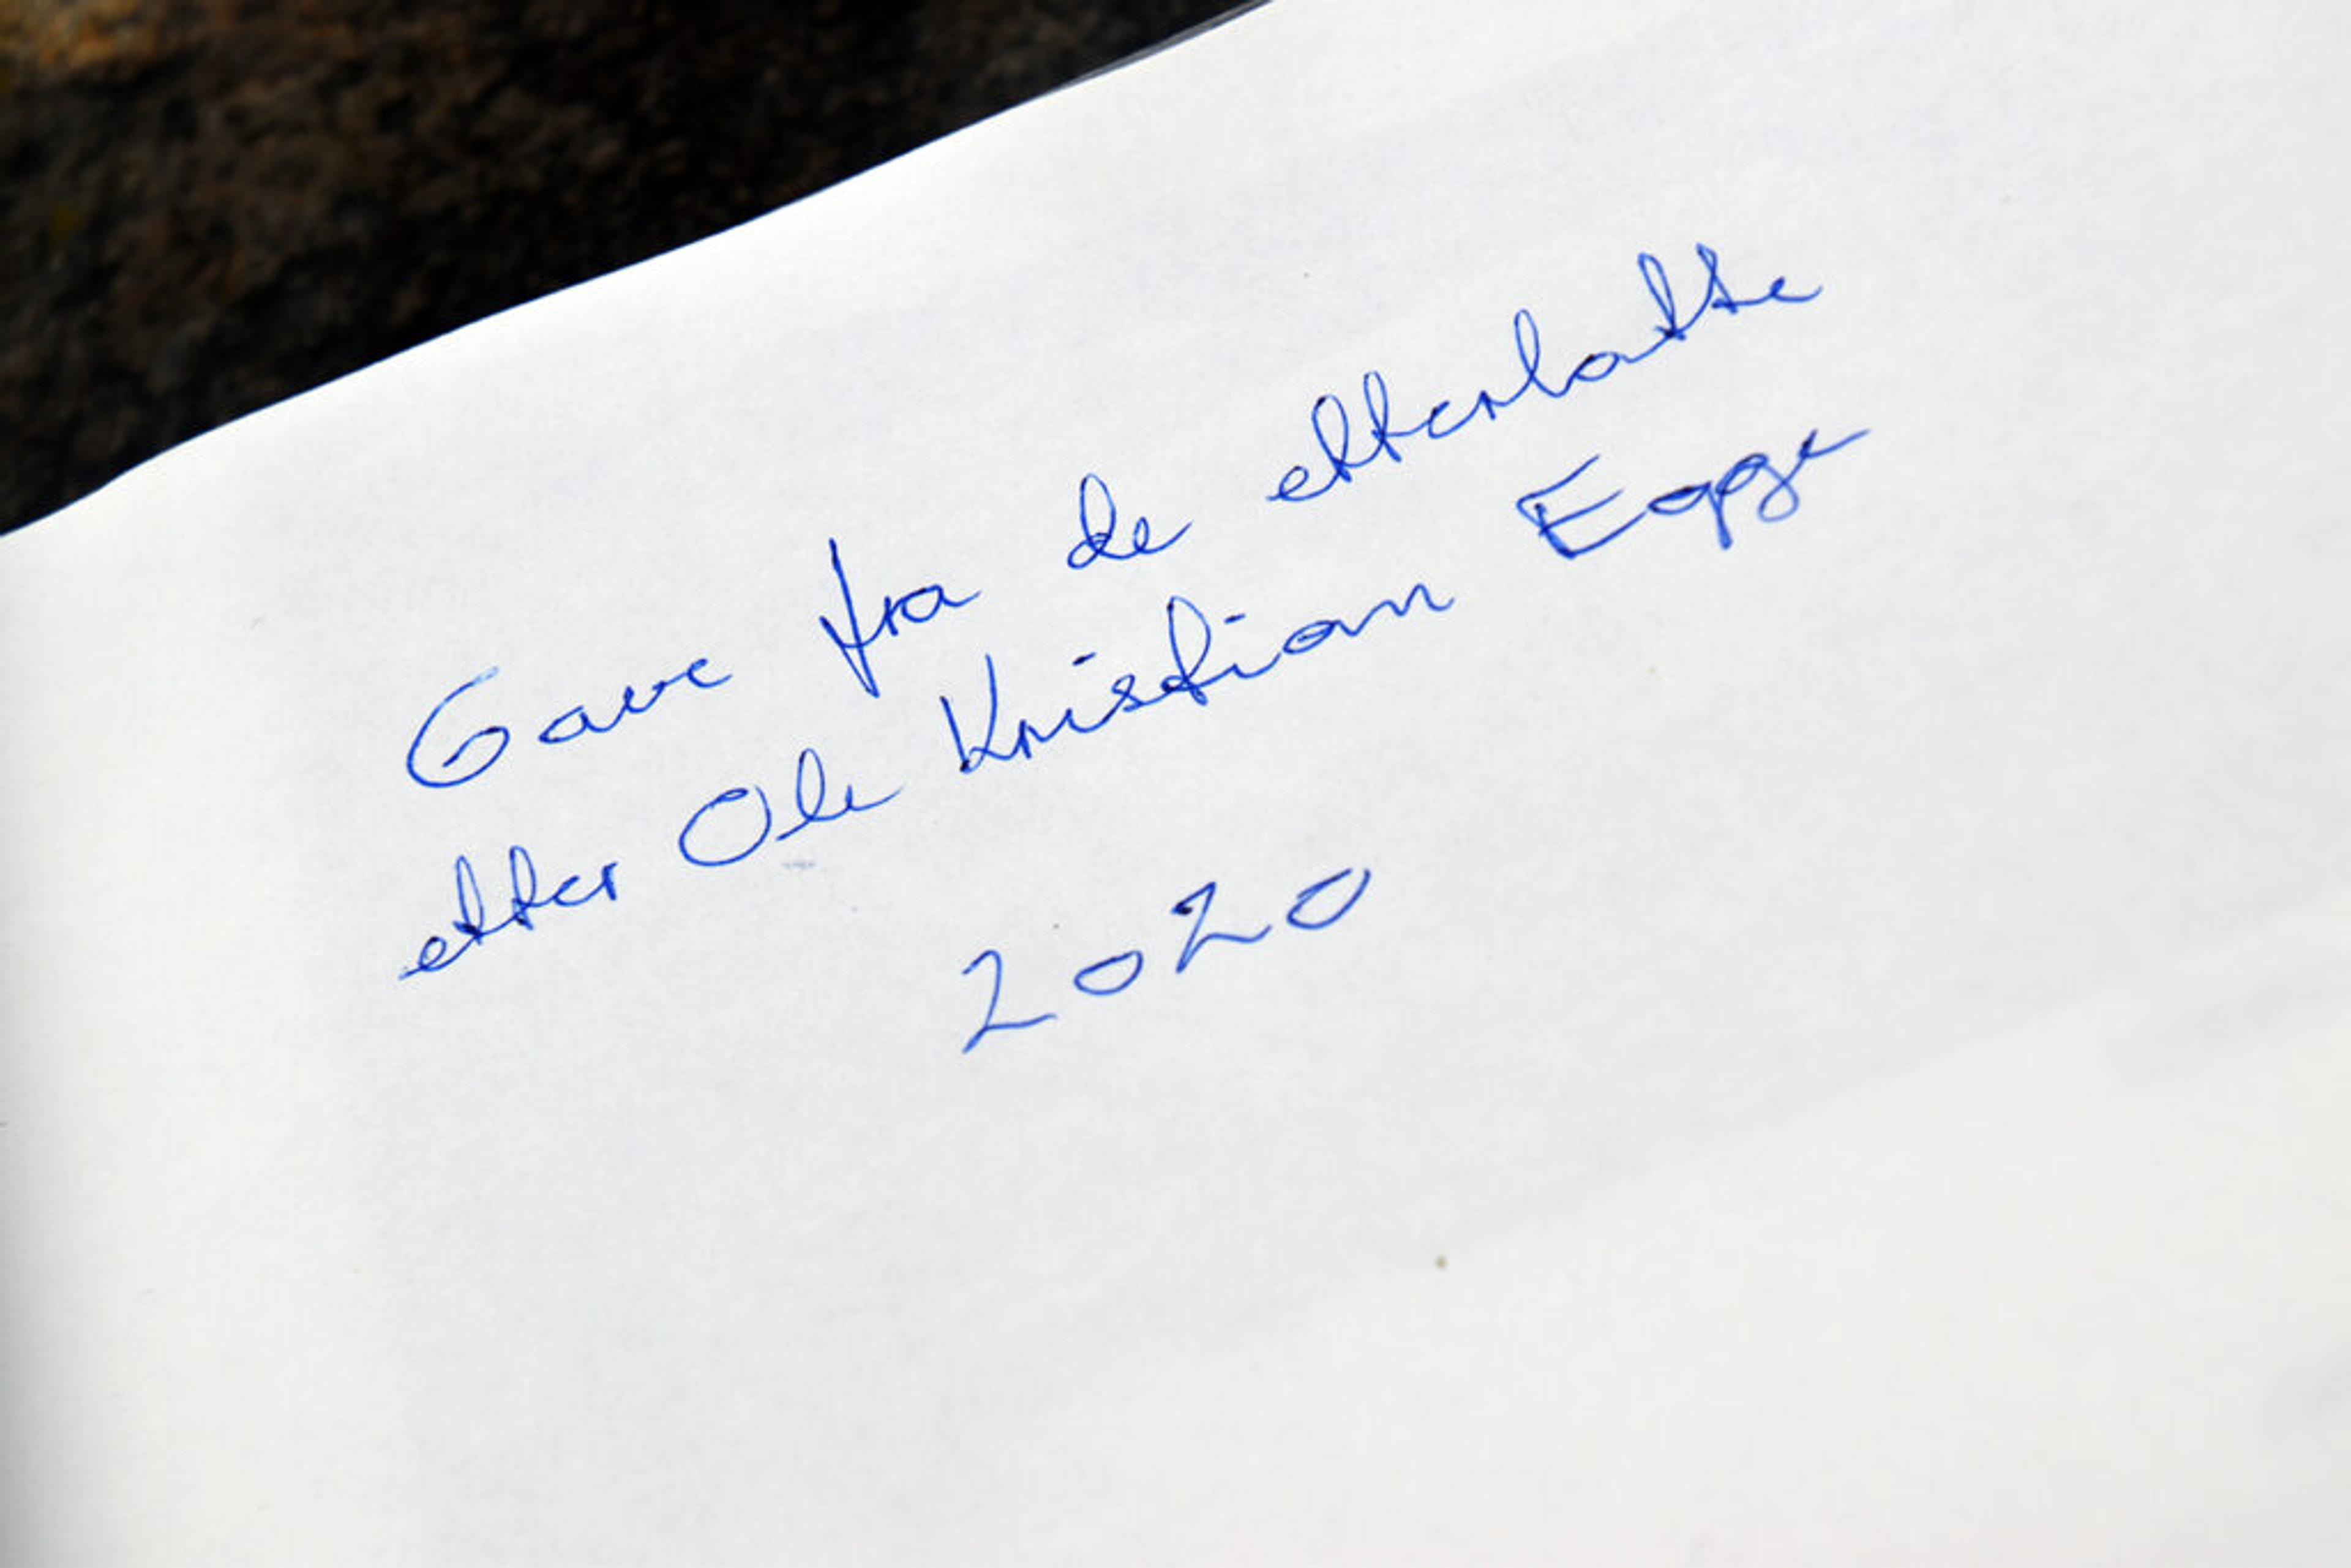 Gave fra de etterlatte
etter Ole Kristian Egge
2020